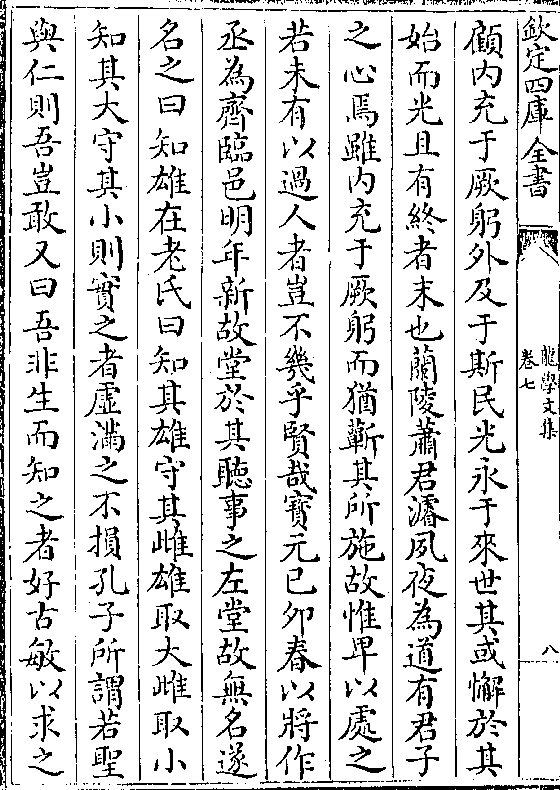 欽定四庫全書
龍學文集
卷七
八
顧内充于厥躬外及于斯民光永于來世其或懈於其
始而光且有終者末也蘭陵蕭君濬夙夜為道有君子
之心焉雖内充于厥躬而猶蘄其所施故惟卑以處之
若未有以過人者豈不幾乎賢哉寳元已卯春以將作
丞為齊臨邑明年新故堂於其聽事之左堂故無名遂
名之曰知雄在老氏曰知其雄守其雌雄取大雌取小
知其大守其小則實之者虚滿之不損孔子所謂若聖
與仁則吾豈敢又曰吾非生而知之者好古敏以求之